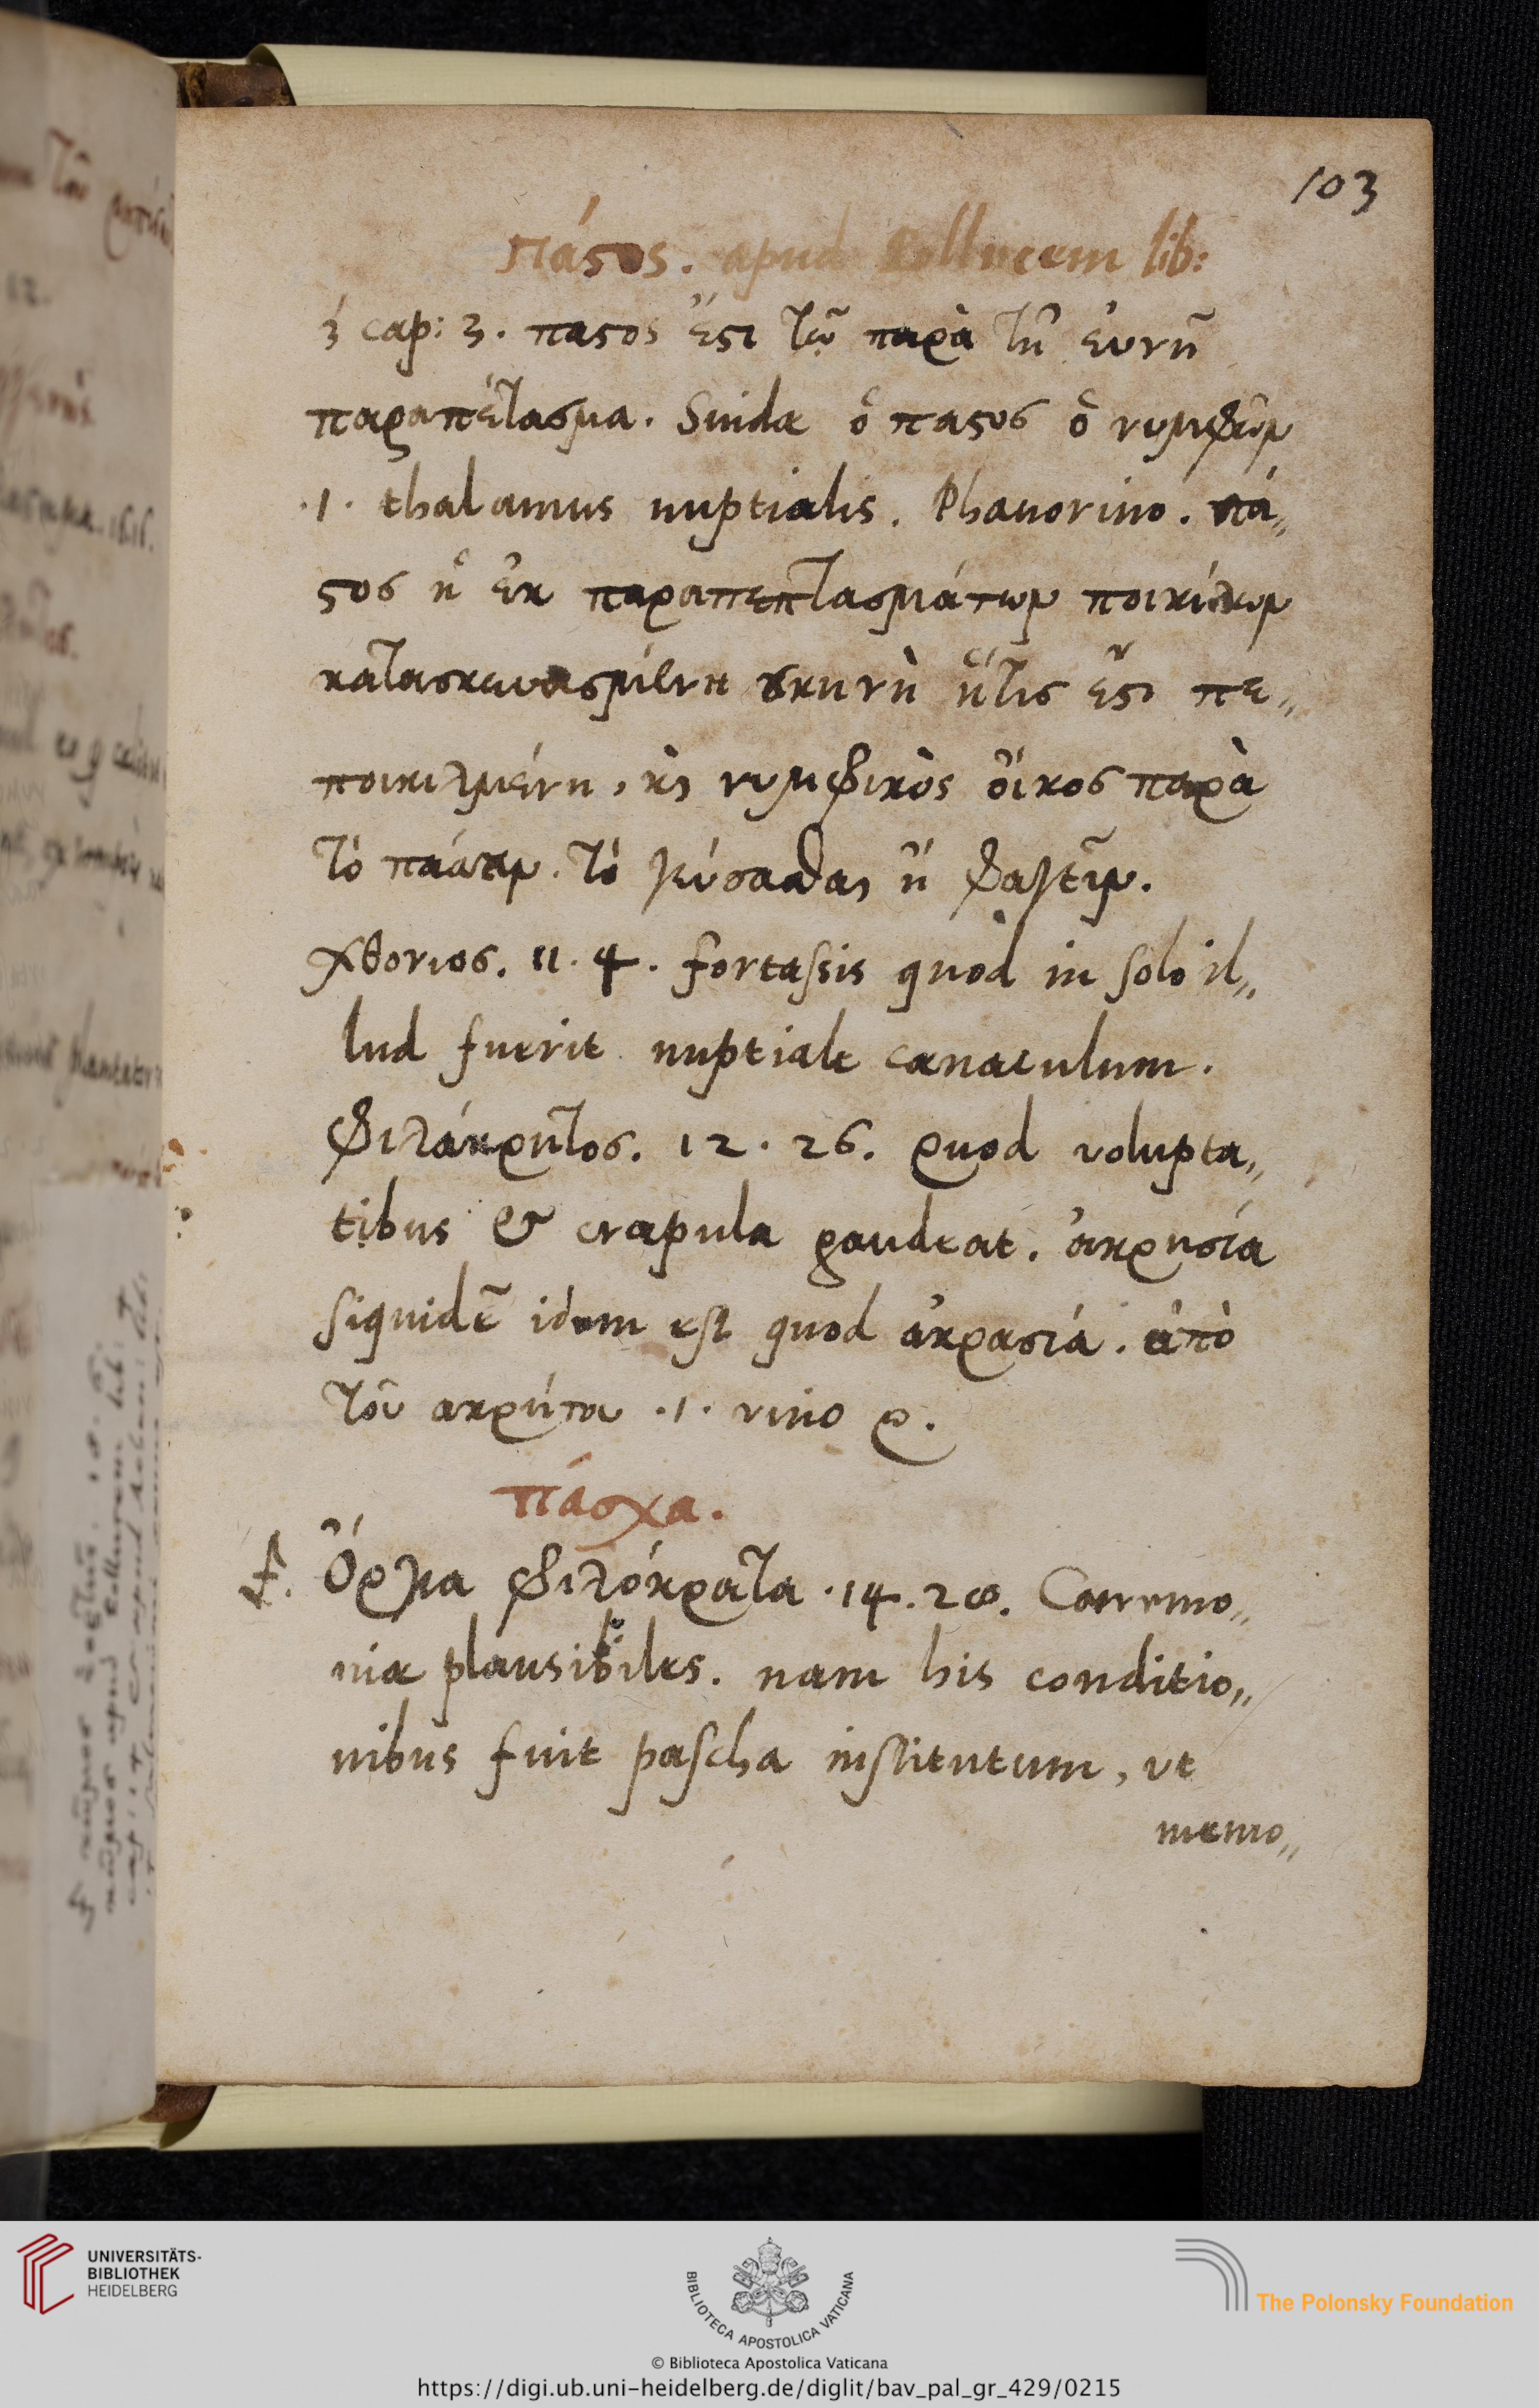 103
πάςος. apud Pollucem lib:
3 cap: 3. παςος ἔςι τῷ παρὰ τῇ εὐνῇ
παραπέτασμα. Suidæ ὁ παςος ὁ νυμφὼν
.1. thalamus nuptialis. Phauorino. πά„
ςος ἡ ἐκ παραπεπτασμάτων ποικίλων
κατασκευασμένη σκηνὴ ἥτις ἐςι πε„
ποικιλμένη, κ̀ νυμφικὸς οἶκος παρὰ
τὸ πάσαι. τὸ γεύσασθαι ἢ φαγεῖν.
χθονιος. 11. 4. fortaſsis quòd in ſolo il„
lud fuerit nuptiale cænaculum.
φιλάκρητος. 12. 26. Quod volupta„
tibus & crapula gaudeat. ἀκρησία
ſiquidē idem eſt quod ἀκρασία. ἀπὸ
τοῦ ακρήτου .1. vino
πάσχα.
Ὄργια φιλόκρατα .14. 28. Cæremo„
niæ plausibiles. nam his conditio„
nibus fuit paſcha inſtitutum, vt
memo„
UNIVERSITÄTS-
BIBLIOTHEK
HEIDELBERG
BIBLIOTECA APOSTOLICA VATICANA
The Polonsky Foundation
© Biblioteca Apostolica Vaticana
https://digi.ub.uni-heidelberg.de/diglit/bav_pal_gr_429/0215